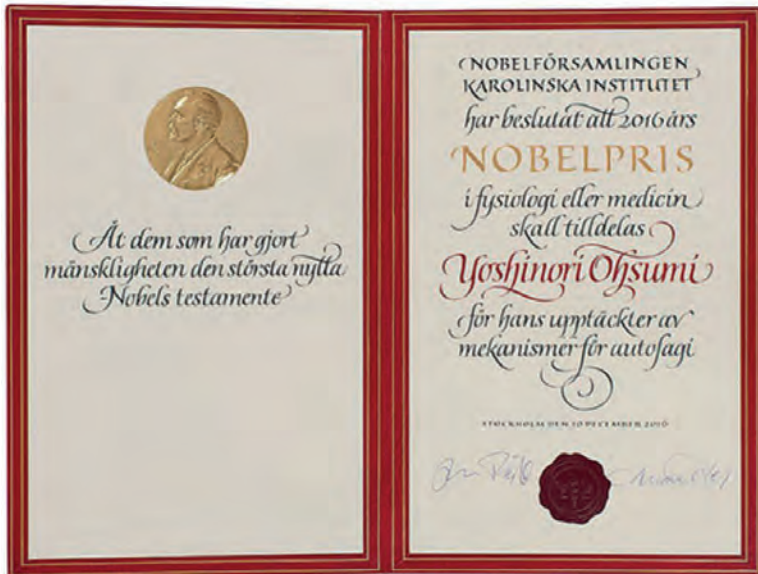 Åt dem som har gjort
mänskligheten den största nytta
-Nobels testamente
NOBELFÖRSAMLINGEN
KAROLINSKA INSTITUTET
har beslutat att 2016 års
NOBELPRIS
i fysiologi eller medicin
skall tilldelas
Yoshinori Ohsumi
för hans upptäckter av
mekanismer för autofagi
STOCKHOLM DEN 10 DECEMBER 2016